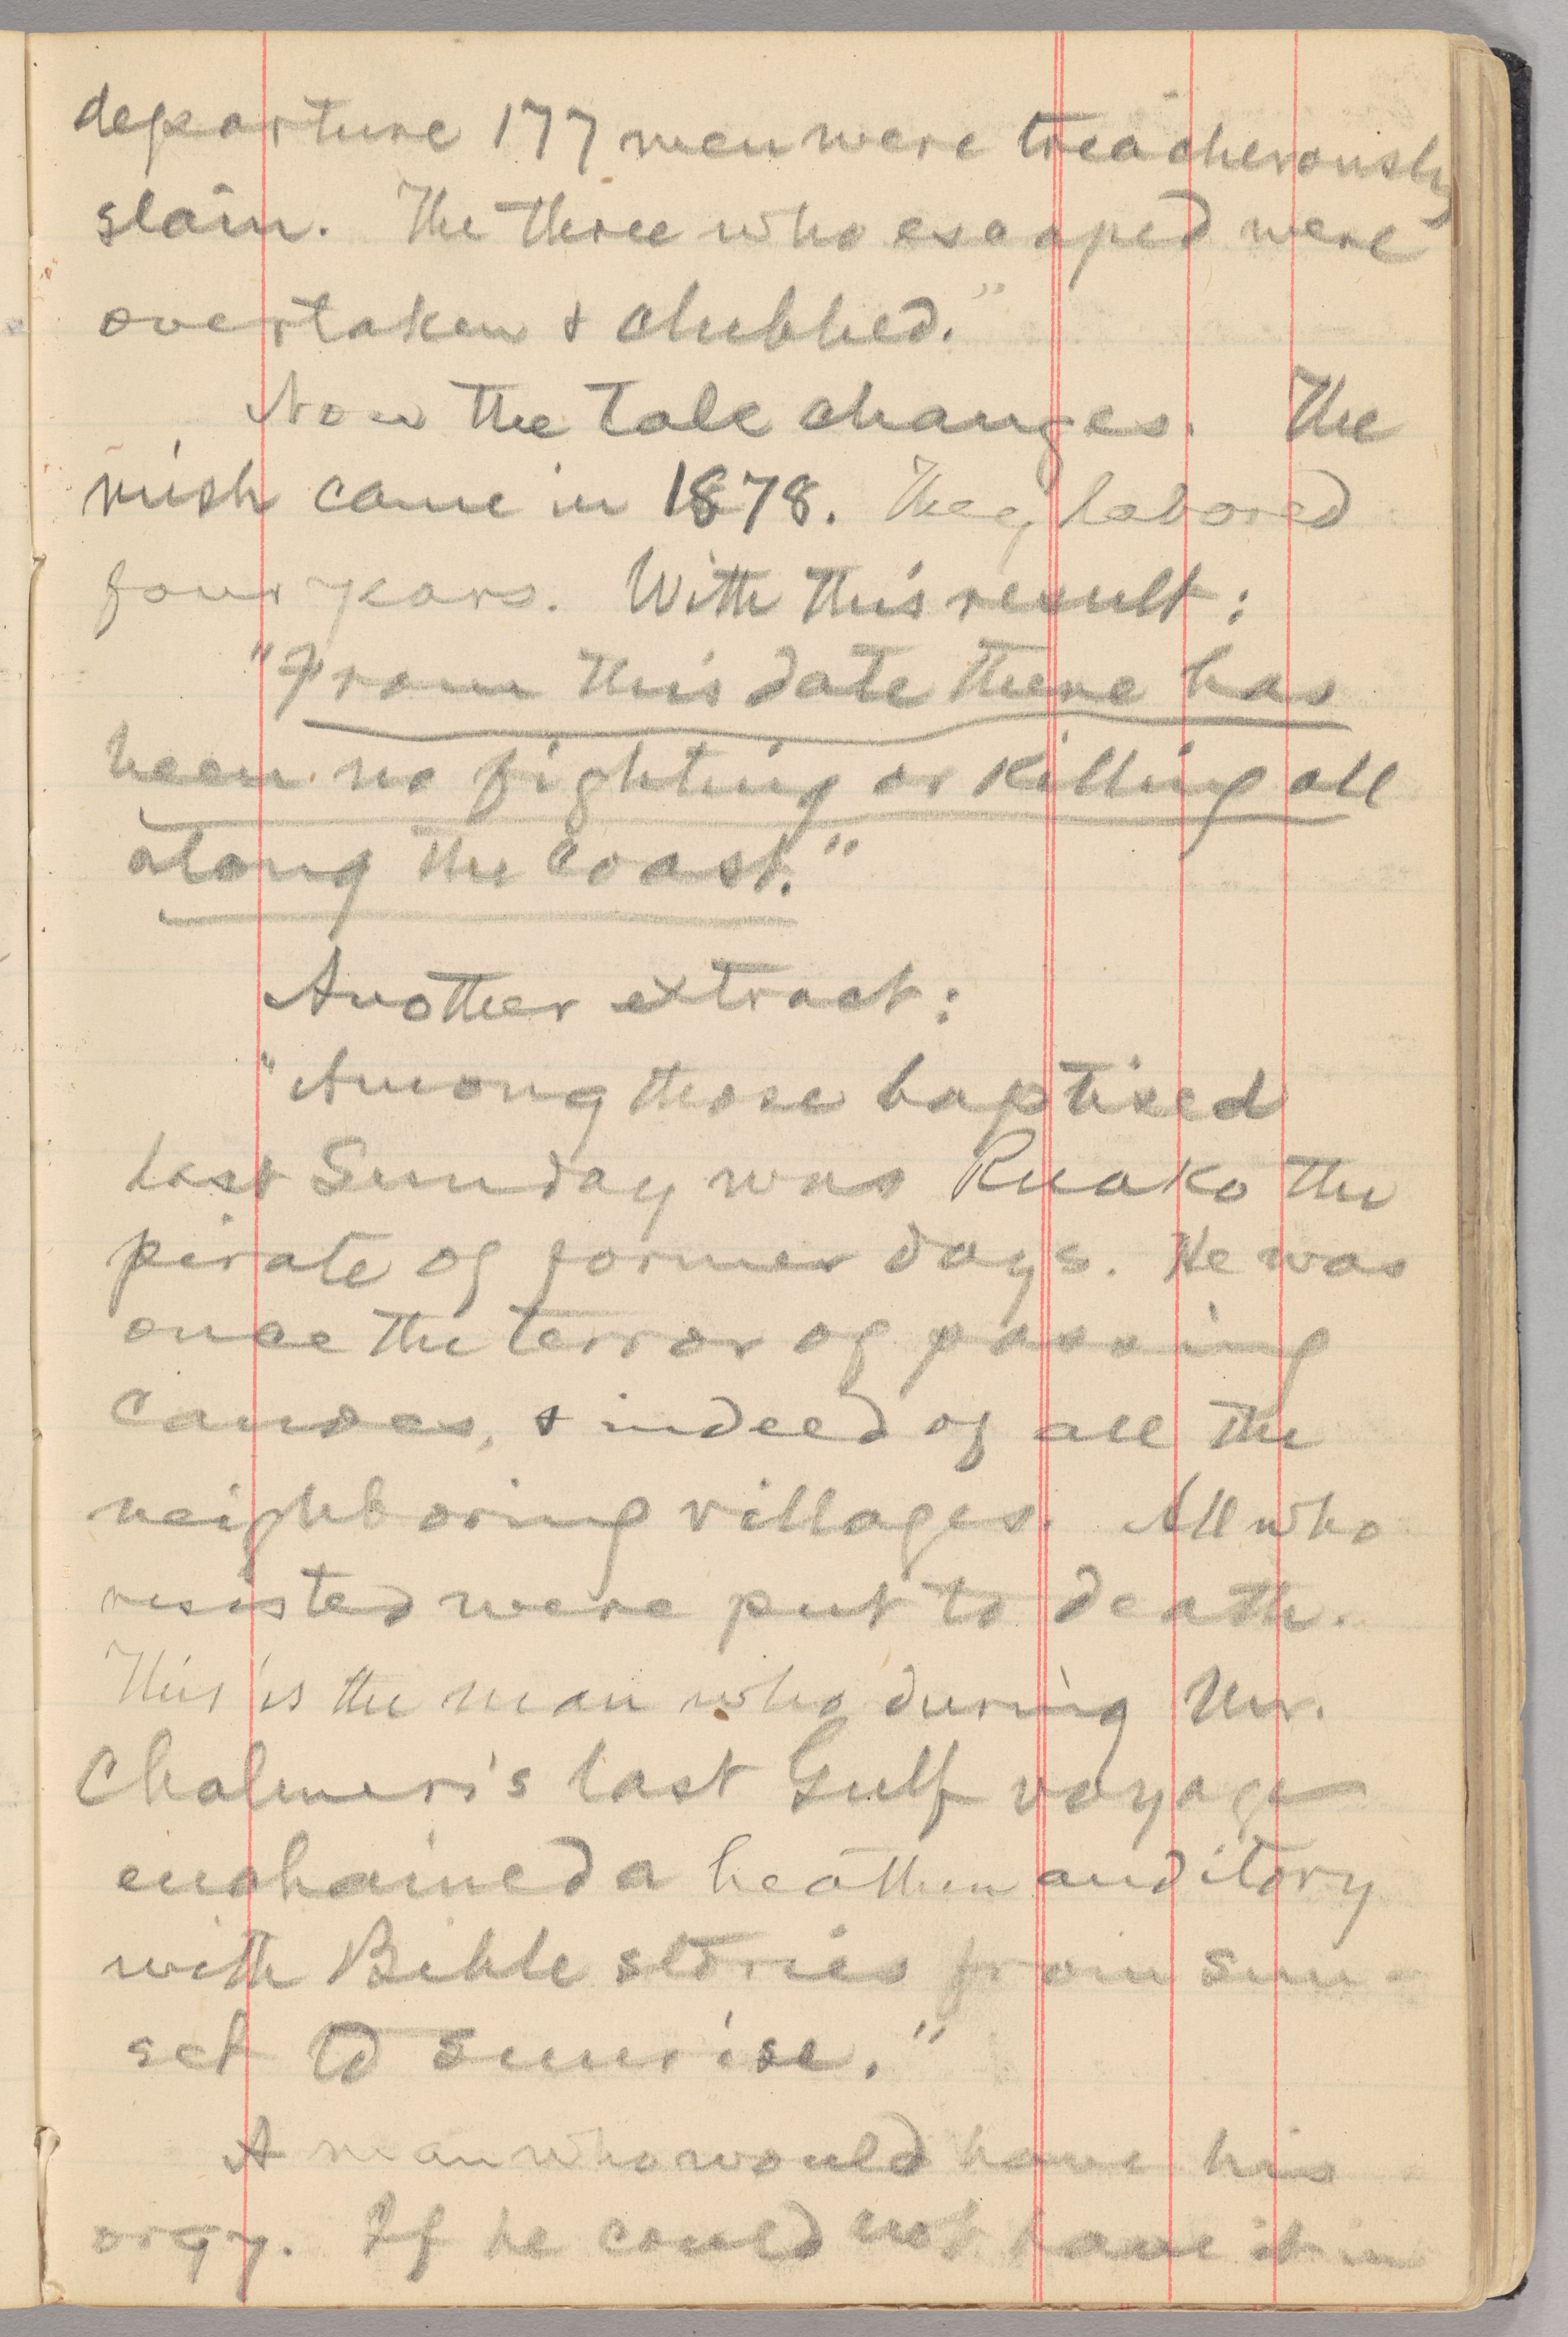 departure 177 men were treacherously
slain. The three who escaped were
overtaken & clubbed."
Now the tale changes. The
mish came in 1878. They labored
four years. With this result:
"From this date there has
been no fighting or killing all
along the coast."
Another extract:
"Among those baptised
last Sunday was Ruako the
pirate of former days. He was
once the terror of passing
canoes, & indeed of all the
neighboring villages. All who
resisted were put to death.
This is the man who during Mr.
Chalmers's last Gulf voyage
enchained a heathen auditory
with Bible stories from sun-
set to sunrise."
A man who would have his
orgy. If he could not have it in